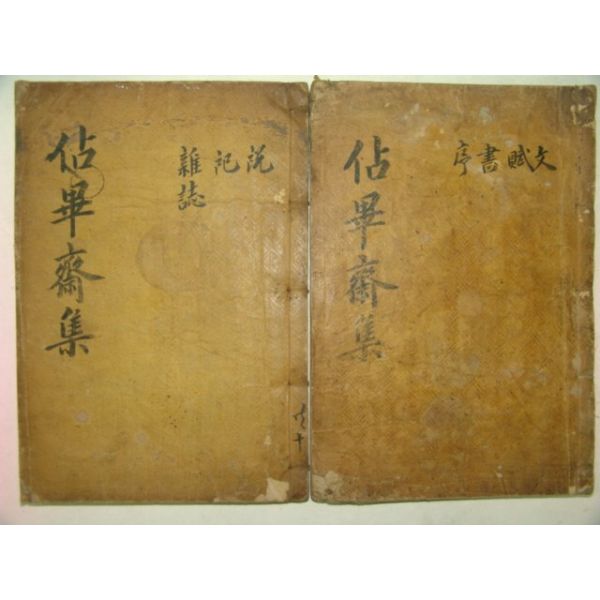 佔畢齋集
說
記
雜誌
共十
佔畢齋集
文
賦
書
序